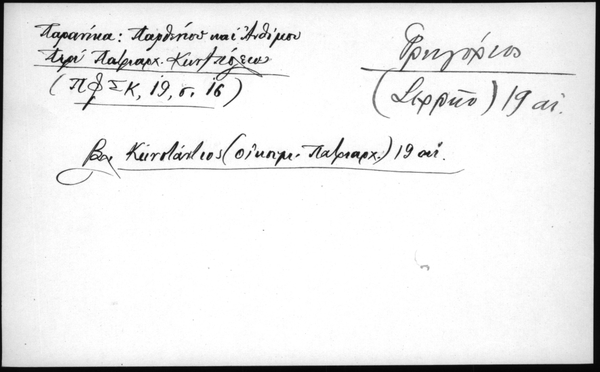 Παρανίκα: Παρθενίου καὶ Ἀνθίμου
Περὶ Πατριαρχ. Κων/πόλεως
(ΠΦΣΚ, 19, σ. 16)
Γρηγόριος
(Σερρῶν) 19 αἰ.
βλ Κωνστάντιος (Οἰκουμ. Πατριαρχ.) 19 αἰ.